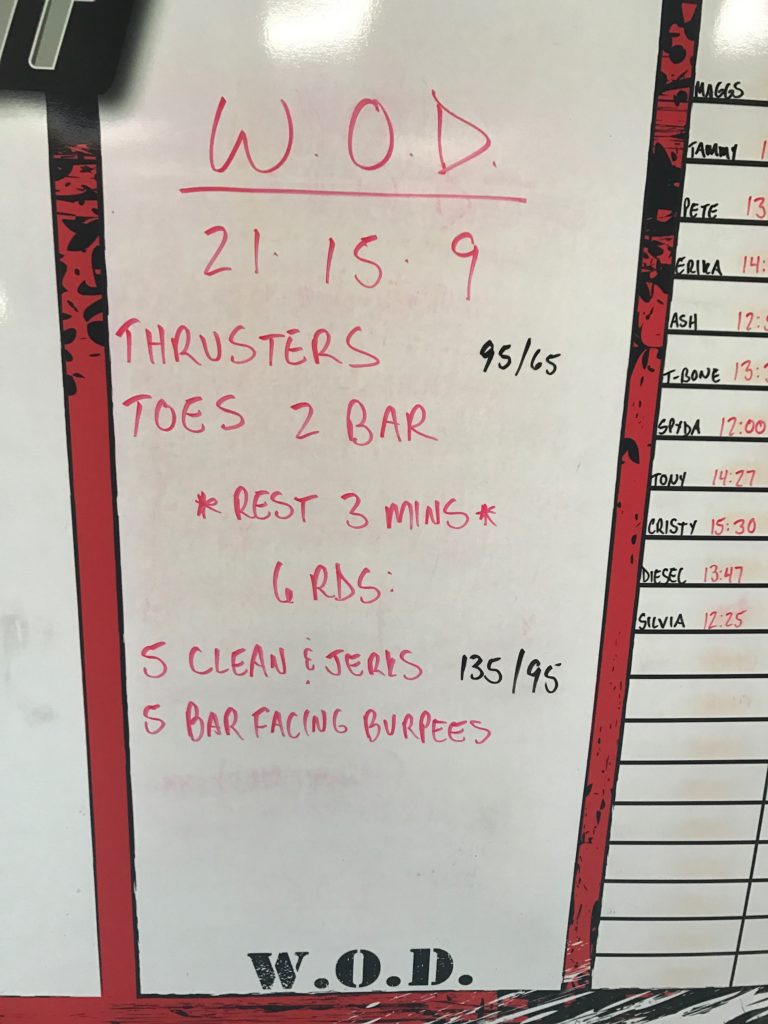 W.O.D.
21. 15. 9
THRUSTERS 95/65
TOES 2 BAR
*REST 3 MINS*
6 RDS:
5 CLEAN & JERKS 135/95
5 BAR FACING BURPEES
W.O.D.
MAGGS
TAMMY
PETE
ERIKA
ASH
T-BONE
SPYDA 12:00
TONY 14:27
CRISTY 15:30
DIESEL 13:47
SILVIA 12:25